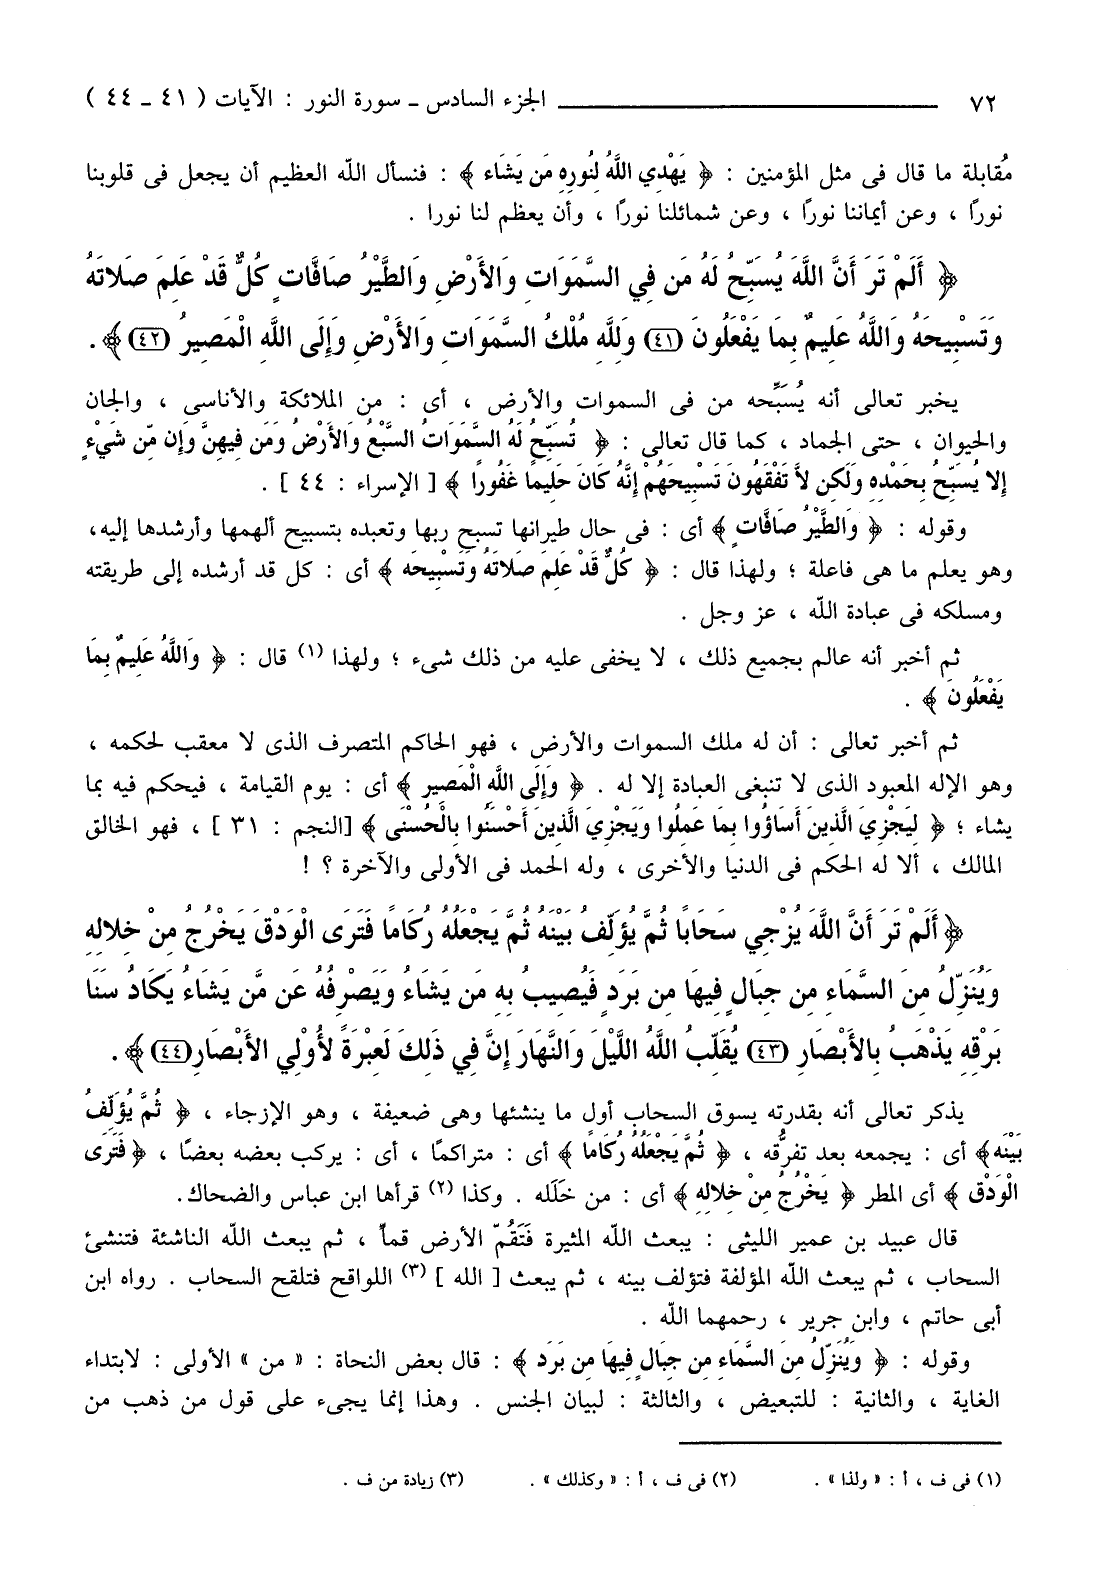 ٧٢ الجزء السادس ـ سورة النور : الآيات ( ٤١ ـ ٤٤ )
مُقابلة ما قال فى مثل المؤمنين : ﴿ يَهْدِي اللَّهُ لِنُورِهِ مَن يَشَاء ﴾ : فنسأل الله العظيم أن يجعل فى قلوبنا
نورًا ، وعن أيماننا نورًا ، وعن شمائلنا نورًا ، وأن يعظم لنا نورا .
﴿ أَلَمْ تَرَ أَنَّ اللَّهَ يُسَبِّحُ لَهُ مَن فِي السَّمَوَاتِ وَالأَرْضِ وَالطَّيْرُ صَافَّاتٍ كُلٌّ قَدْ عَلِمَ صَلاتَهُ
وَتَسْبِيحَهُ وَاللَّهُ عَلِيمٌ بِمَا يَفْعَلُونَ (٤١) وَلِلَّهِ مُلْكُ السَّمَوَاتِ وَالأَرْضِ وَإِلَى اللَّهِ الْمَصِيرُ (٤٢) ﴾ .
يخبر تعالى أنه يُسَبِّحه من فى السموات والأرض ، أى : من الملائكة والأناسى ، والجان
والحيوان ، حتى الجماد ، كما قال تعالى : ﴿ تُسَبِّحُ لَهُ السَّمَوَاتُ السَّبْعُ وَالأَرْضُ وَمَن فِيهِنَّ وَإِن مِّن شَيْءٍ
إِلا يُسَبِّحُ بِحَمْدِهِ وَلَكِن لاَّ تَفْقَهُونَ تَسْبِيحَهُمْ إِنَّهُ كَانَ حَلِيمًا غَفُورًا ﴾ [ الإسراء : ٤٤ ] .
وقوله : ﴿ وَالطَّيْرُ صَافَّاتٍ ﴾ أى : فى حال طيرانها تسبح ربها وتعبده بتسبيح ألهمها وأرشدها إليه،
وهو يعلم ما هى فاعلة ؛ ولهذا قال : ﴿ كُلٌّ قَدْ عَلِمَ صَلاتَهُ وَتَسْبِيحَه ﴾ أى : كل قد أرشده إلى طريقته
ومسلكه فى عبادة الله ، عز وجل .
ثم أخبر أنه عالم بجميع ذلك ، لا يخفى عليه من ذلك شىء ؛ ولهذا (١) قال : ﴿ وَاللَّهُ عَلِيمٌ بِمَا
يَفْعَلُونَ ﴾ .
ثم أخبر تعالى : أن له ملك السموات والأرض ، فهو الحاكم المتصرف الذى لا معقب لحكمه ،
وهو الإله المعبود الذى لا تنبغى العبادة إلا له . ﴿ وَإِلَى اللَّهِ الْمَصِير ﴾ أى : يوم القيامة ، فيحكم فيه بما
يشاء ؛ ﴿ لِيَجْزِيَ الَّذِينَ أَسَاؤُوا بِمَا عَمِلُوا وَيَجْزِيَ الَّذِينَ أَحْسَنُوا بِالْحُسْنَى ﴾ [النجم : ٣١ ] ، فهو الخالق
المالك ، ألا له الحكم فى الدنيا والأخرى ، وله الحمد فى الأولى والآخرة ؟ !
﴿ أَلَمْ تَرَ أَنَّ اللَّهَ يُزْجِي سَحَابًا ثُمَّ يُؤَلِّفُ بَيْنَهُ ثُمَّ يَجْعَلُهُ رُكَامًا فَتَرَى الْوَدْقَ يَخْرُجُ مِنْ خِلالِهِ
وَيُنَزِّلُ مِنَ السَّمَاءِ مِن جِبَالٍ فِيهَا مِن بَرَدٍ فَيُصِيبُ بِهِ مَن يَشَاءُ وَيَصْرِفُهُ عَن مَّن يَشَاءُ يَكَادُ سَنَا
بَرْقِهِ يَذْهَبُ بِالأَبْصَارِ (٤٣) يُقَلِّبُ اللَّهُ اللَّيْلَ وَالنَّهَارَ إِنَّ فِي ذَلِكَ لَعِبْرَةً لأُوْلِي الأَبْصَارِ(٤٤) ﴾ .
يذكر تعالى أنه بقدرته يسوق السحاب أول ما ينشئها وهى ضعيفة ، وهو الإزجاء ، ﴿ ثُمَّ يُؤَلِّفُ
بَيْنَه ﴾ أى : يجمعه بعد تفرُّقه ، ﴿ ثُمَّ يَجْعَلُهُ رُكَامًا ﴾ أى : متراكمًا ، أى : يركب بعضه بعضًا ، ﴿ فَتَرَى
الْوَدْق ﴾ أى المطر ﴿ يَخْرُجُ مِنْ خِلالِهِ ﴾ أى : من خَلَله . وكذا (٢) قرأها ابن عباس والضحاك.
قال عبيد بن عمير الليثى : يبعث الله المثيرة فَتَقُمّ الأرض قماً ، ثم يبعث الله الناشئة فتنشئ
السحاب ، ثم يبعث الله المؤلفة فتؤلف بينه ، ثم يبعث [ الله ] (٣) اللواقح فتلقح السحاب . رواه ابن
أبى حاتم ، وابن جرير ، رحمهما الله .
وقوله : ﴿ وَيُنَزِّلُ مِنَ السَّمَاءِ مِن جِبَالٍ فِيهَا مِن بَرَد ﴾ : قال بعض النحاة : « من » الأولى : لابتداء
الغاية ، والثانية : للتبعيض ، والثالثة : لبيان الجنس . وهذا إنما يجىء على قول من ذهب من
(١) فى ف ، أ : « ولذا » . (٢) فى ف ، أ : « وكذلك » . (٣) زيادة من ف .